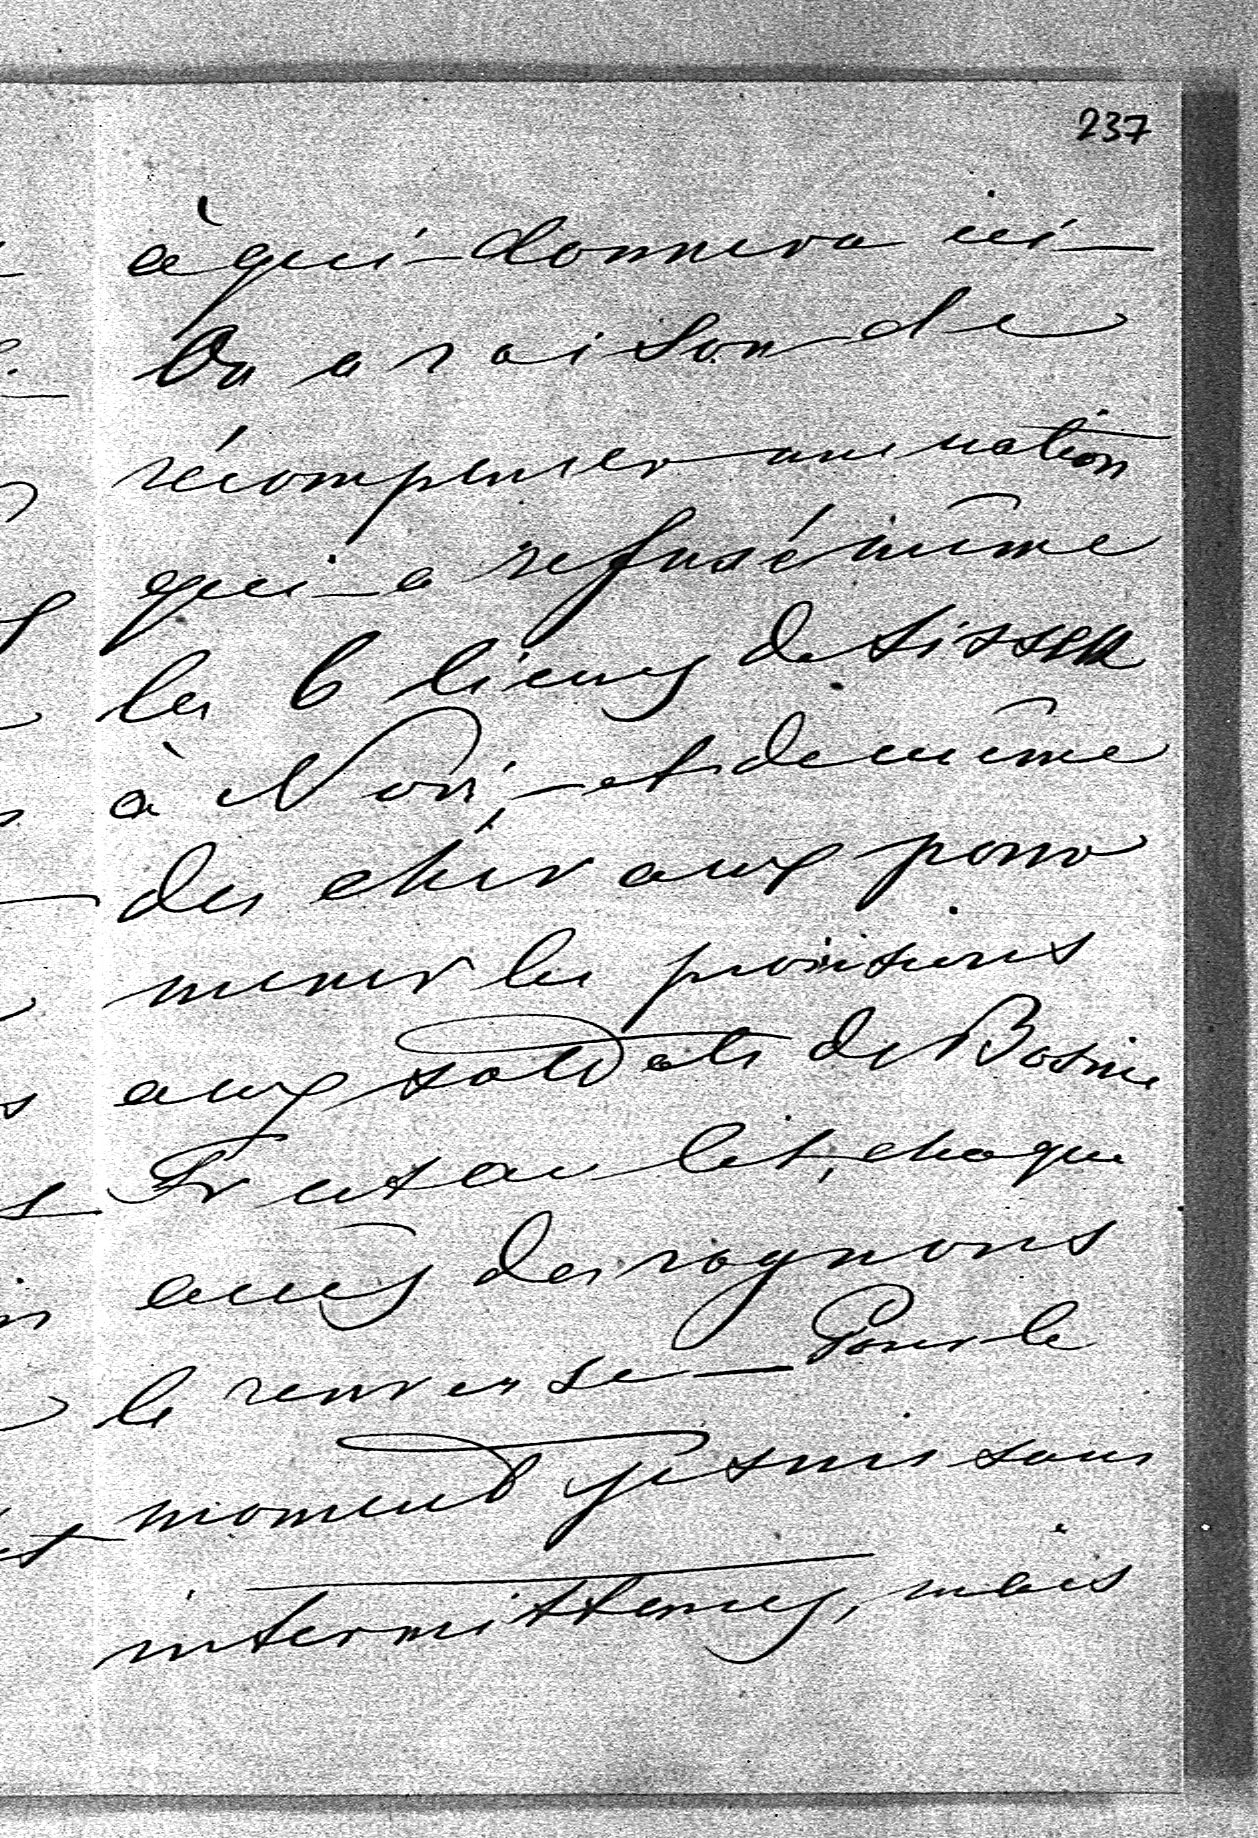 237
à qui donnera ici
On a raison de
récompenser une nation
qui a refusé même
les 6 lieues de Sissek
à Novi, et de même
des chevaux pour
mener les provisions
aux soldats de Bosnie
Fr est au lit, chaque
accès des rognons
le renverse — Pour le
moment je suis sans
intermittences, mais